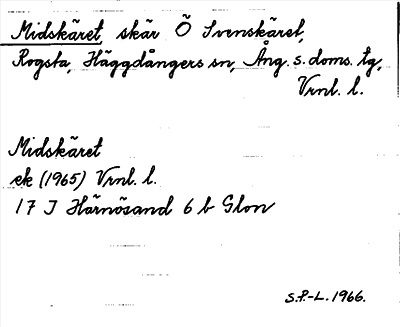 Midskäret, skär Ö Svenskäret,
Rogsta, Häggdångers sn, Ång. s. doms. tg,
Vrnl. l.
Midskäret
ek (1965) Vrnl. l.
17 J Härnösand 6 b Glon
S.P.-L. 1966.